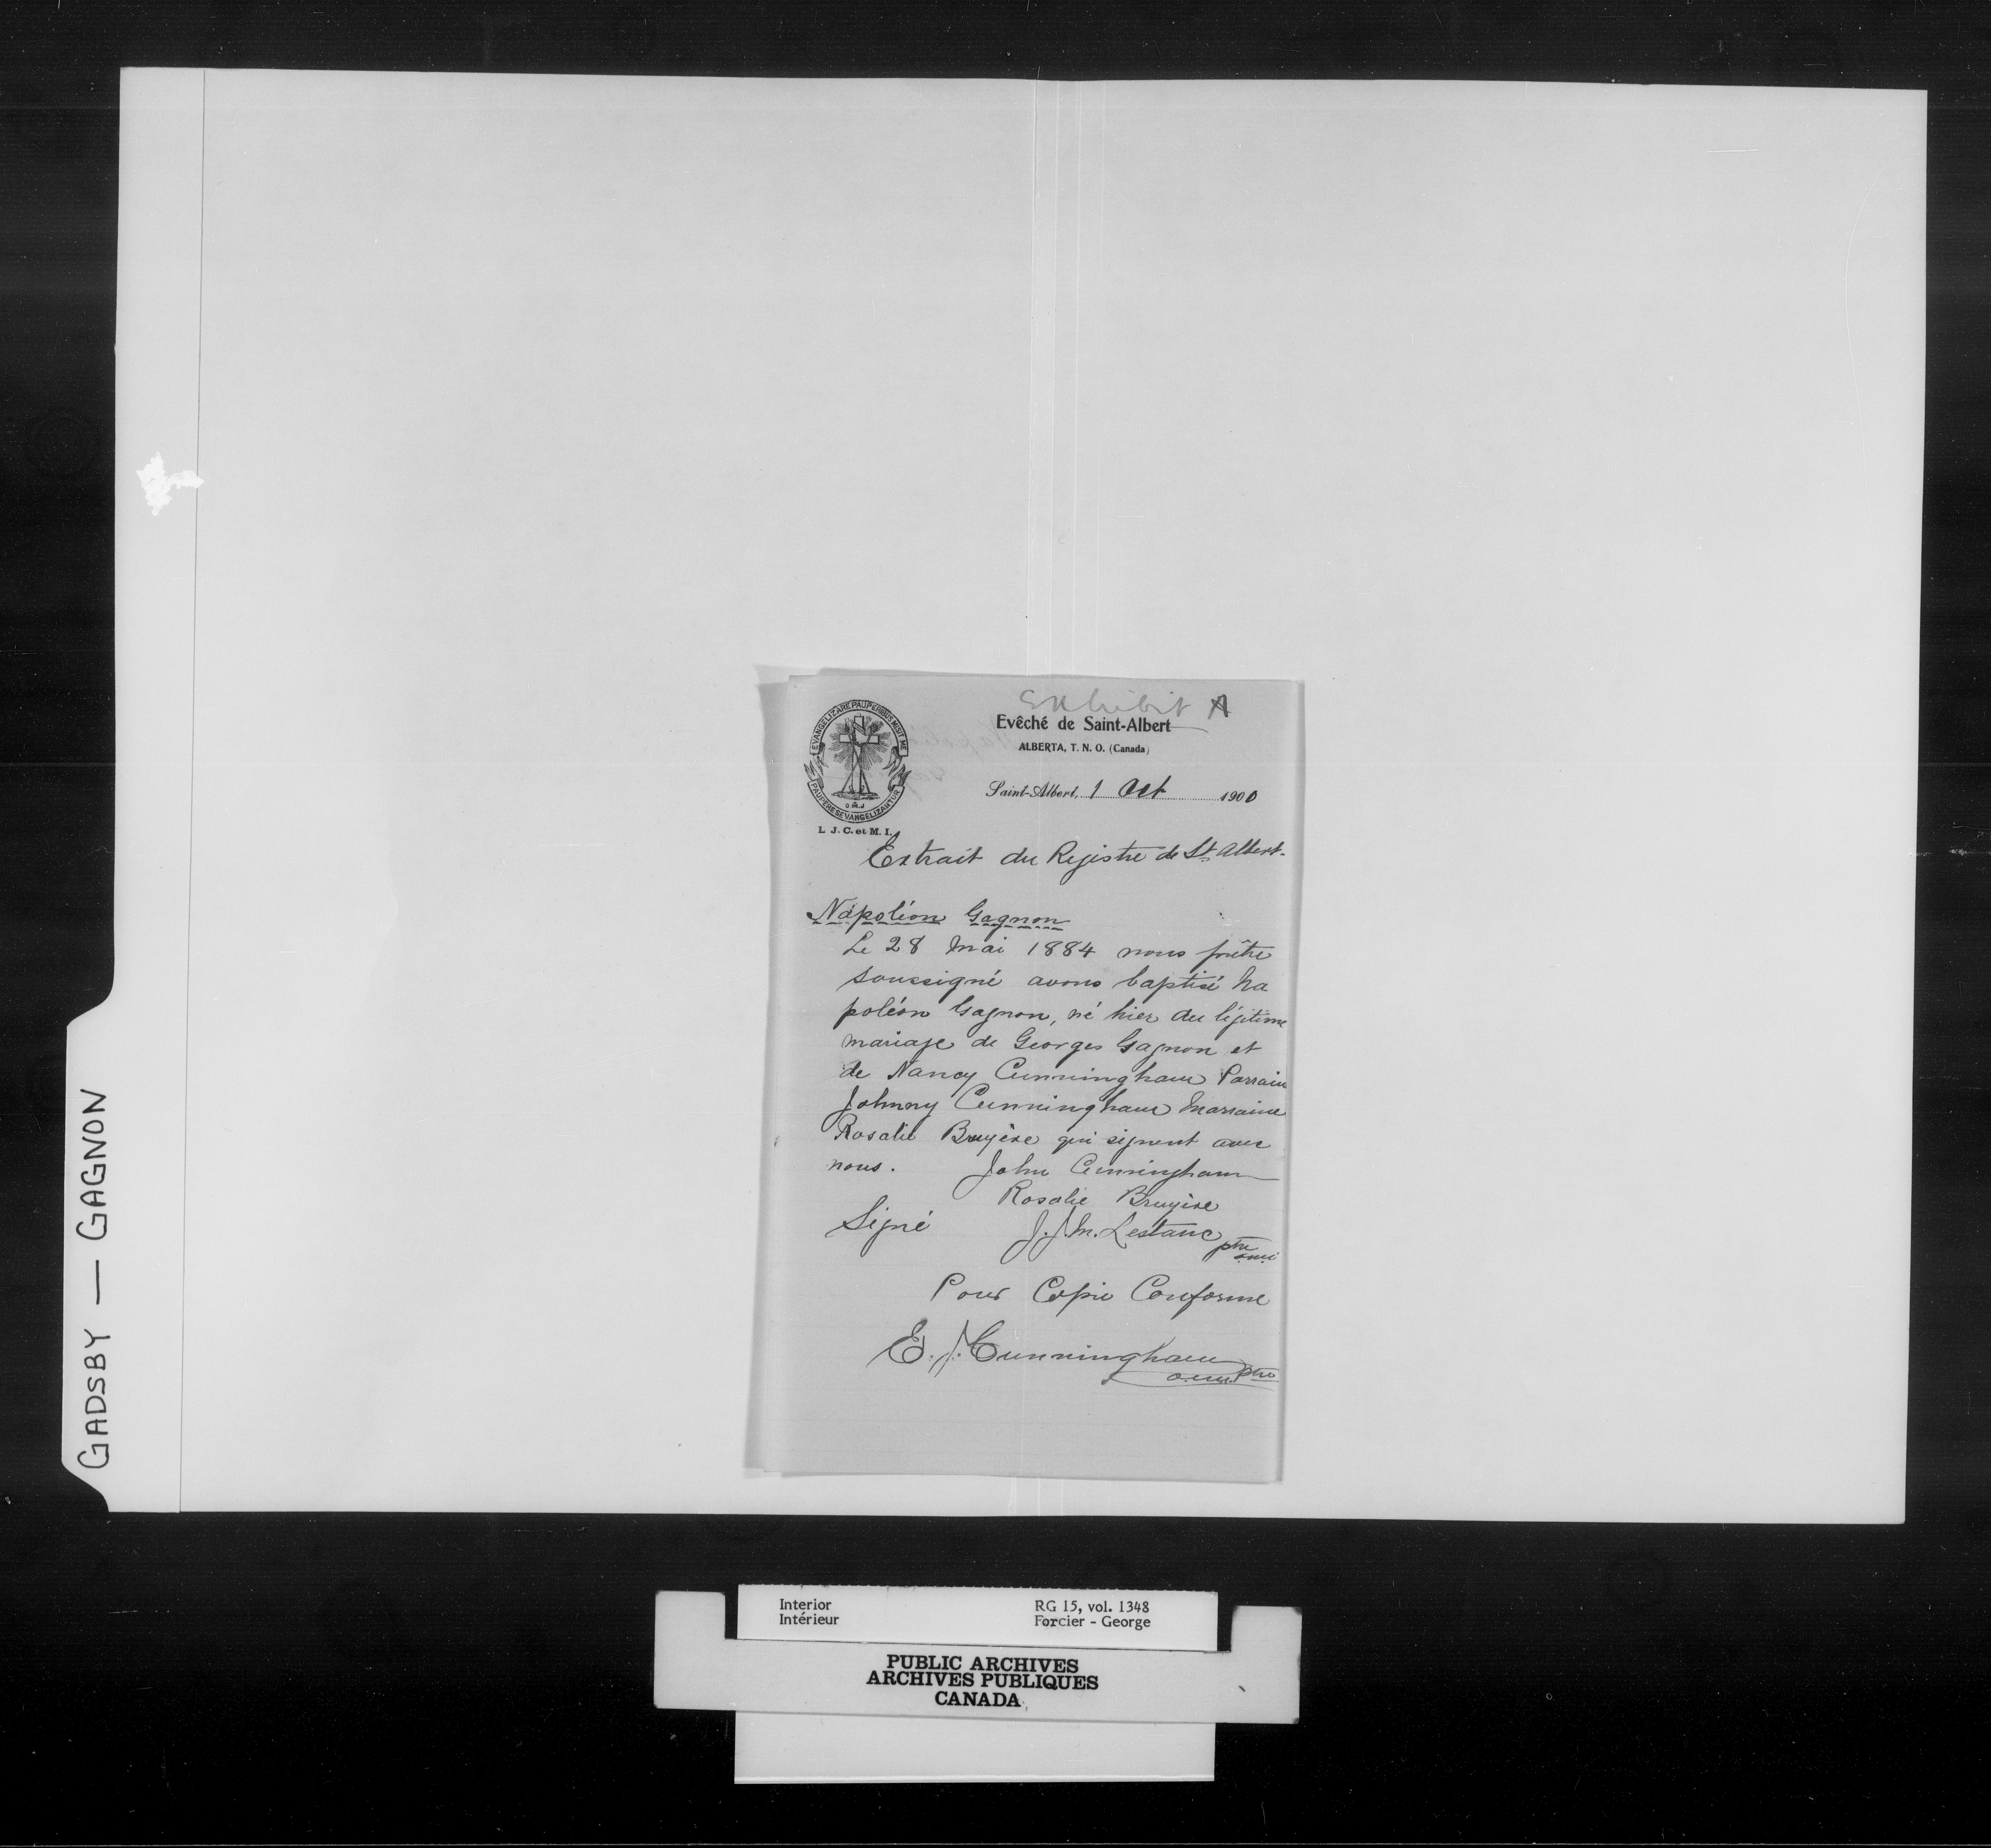 GADSBY — GAGNON
Exhibit A
Evêché de Saint-Albert
ALBERTA, T. N. O. (Canada)
EVANGELIZARE PAUPERIBUS MISIT ME
PAUPERES EVANGELIZANTUR
O.M.I
L. J. C. et M. I.
Saint-Albert, 1 Oct 1900
Extrait du Registre de St Albert.
Napoléon Gagnon
Le 28 Mai 1884 nous prêtre
soussigné avons baptisé Na
poléon Gagnon, né hier du légitime
mariage de Georges Gagnon et
de Nancy Cunningham Parrain
Johnny Cunningham Marraine
Rosalie Bruyère qui signent avec
nous. John Cunningham
Rosalie Bruyère
Signé J.J.M. Lestanc ptre
o.m.i
Pour Copie Conforme
E. J. Cunningham ptre
o.m.i.
Interior RG 15, vol. 1348
Intérieur Forcier - George
PUBLIC ARCHIVES
ARCHIVES PUBLIQUES
CANADA